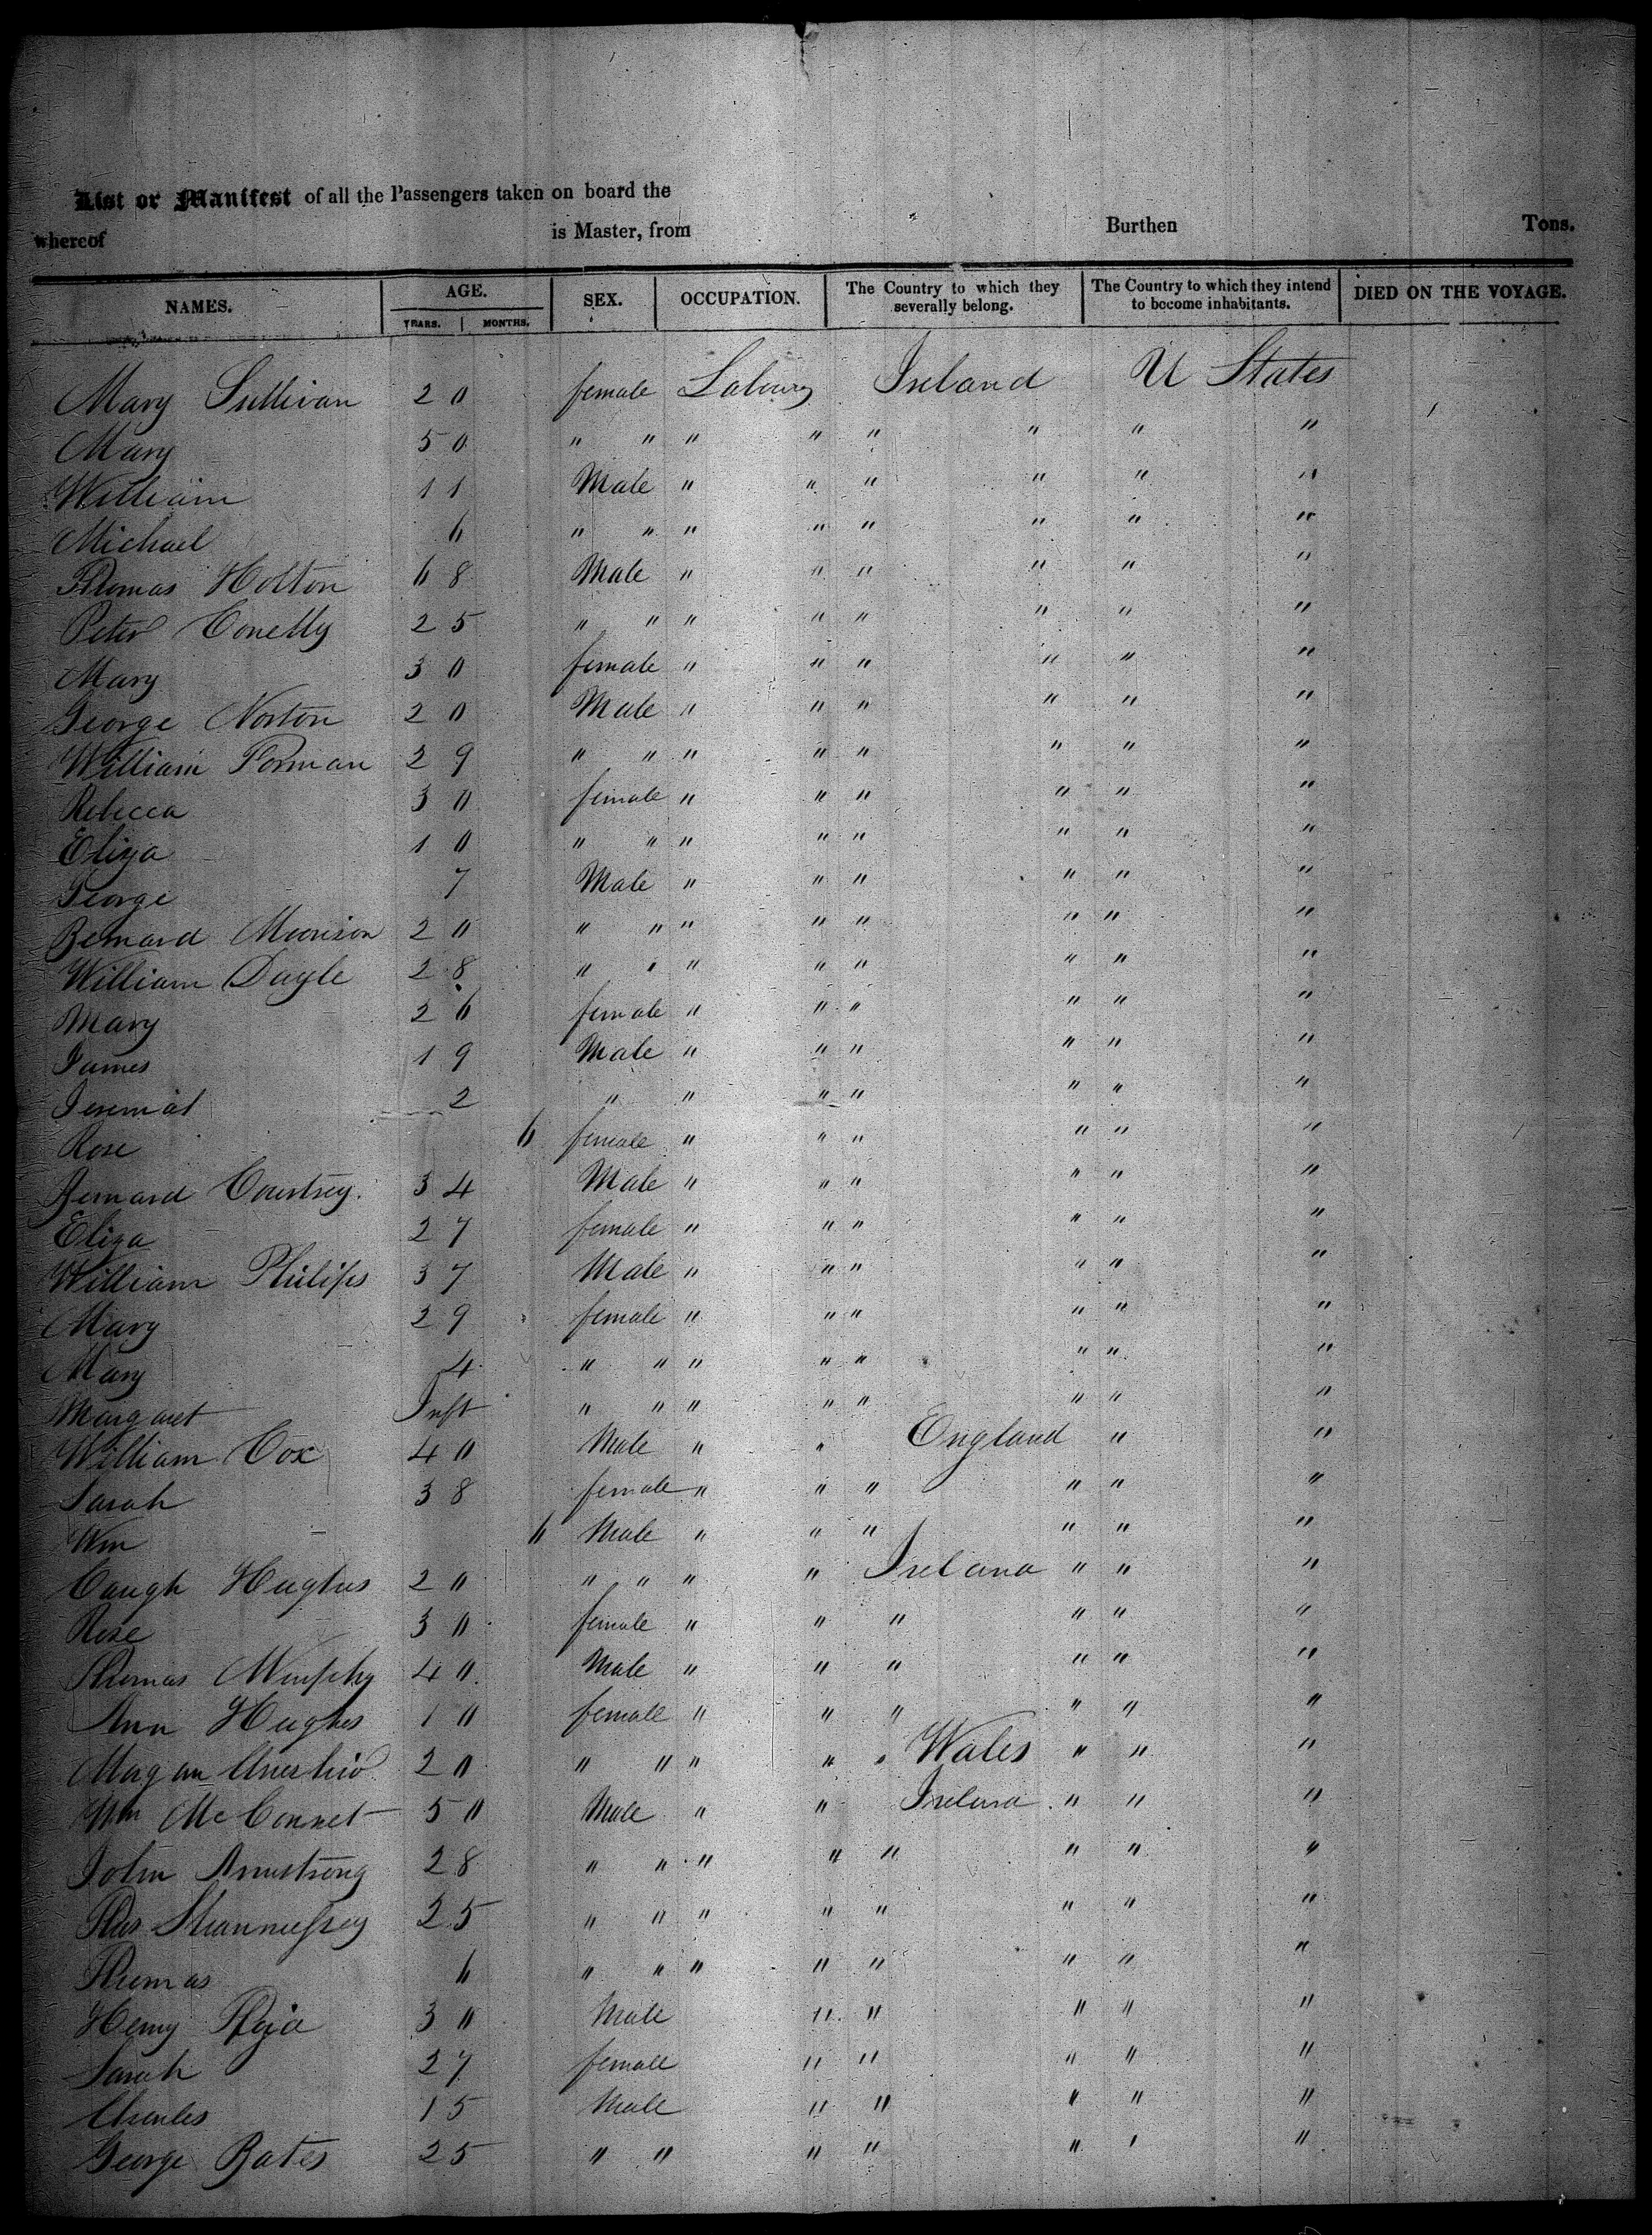 List or Manifest of all the Passengers taken on board the
whereof is Master, from Burthen Tons.
NAMES. AGE. SEX. OCCUPATION. The Country to which they severally belong. The Country to which they intend to become inhabitants. DIED ON THE VOYAGE.
YEARS. MONTHS.
Mary Sullivan 20 female Ireland U States
Mary 50 " " " " " " " "
William 11 Male " " " " " "
Michael 6 " " " " " " " "
Thomas Holton 68 Male " " " " " "
Peter Conelly 25 " " " " " " " "
Mary 30 female " " " " " "
George Norton 20 Male " " " " " "
William Forman 29 " " " " " " " "
Rebecca 30 female " " " " " "
Eliza 10 " " " " " " " "
George 7 Male " " " " " "
Bernard Morrison 20 " " " " " " " "
William Dayle 28 " " " " " " " "
Mary 26 female " " " " " "
James 19 Male " " " " " "
2 " " " " " " "
Rose 6 female " " " " " "
Bernard 34 Male " " " " " "
Eliza 27 female " " " " " "
William Philips 37 Male " " " " " "
Mary 29 female " " " " " "
Mary 4 " " " " " " " "
Margaret Inft " " " " " " " "
William Cox 40 Male " " England " "
Sarah 38 female " " " " " "
Wm 6 Male " " " " " "
Hughes 20 " " " " Ireland " " "
Rose 30 female " " " " " "
Thomas Murphy 40 Male " " " " " "
Ann Hughes 10 female " " " " " "
20 " " " " " Wales " " "
Wm McConnel 50 Male " " Ireland " " "
John Armstrong 28 " " " " " " " "
25 " " " " " " " "
Thomas 6 " " " " " " " "
Henry 30 Male " " " " "
Sarah 27 female " " " " "
Charles 15 Male " " " " "
George Bates 25 " " " " " " "